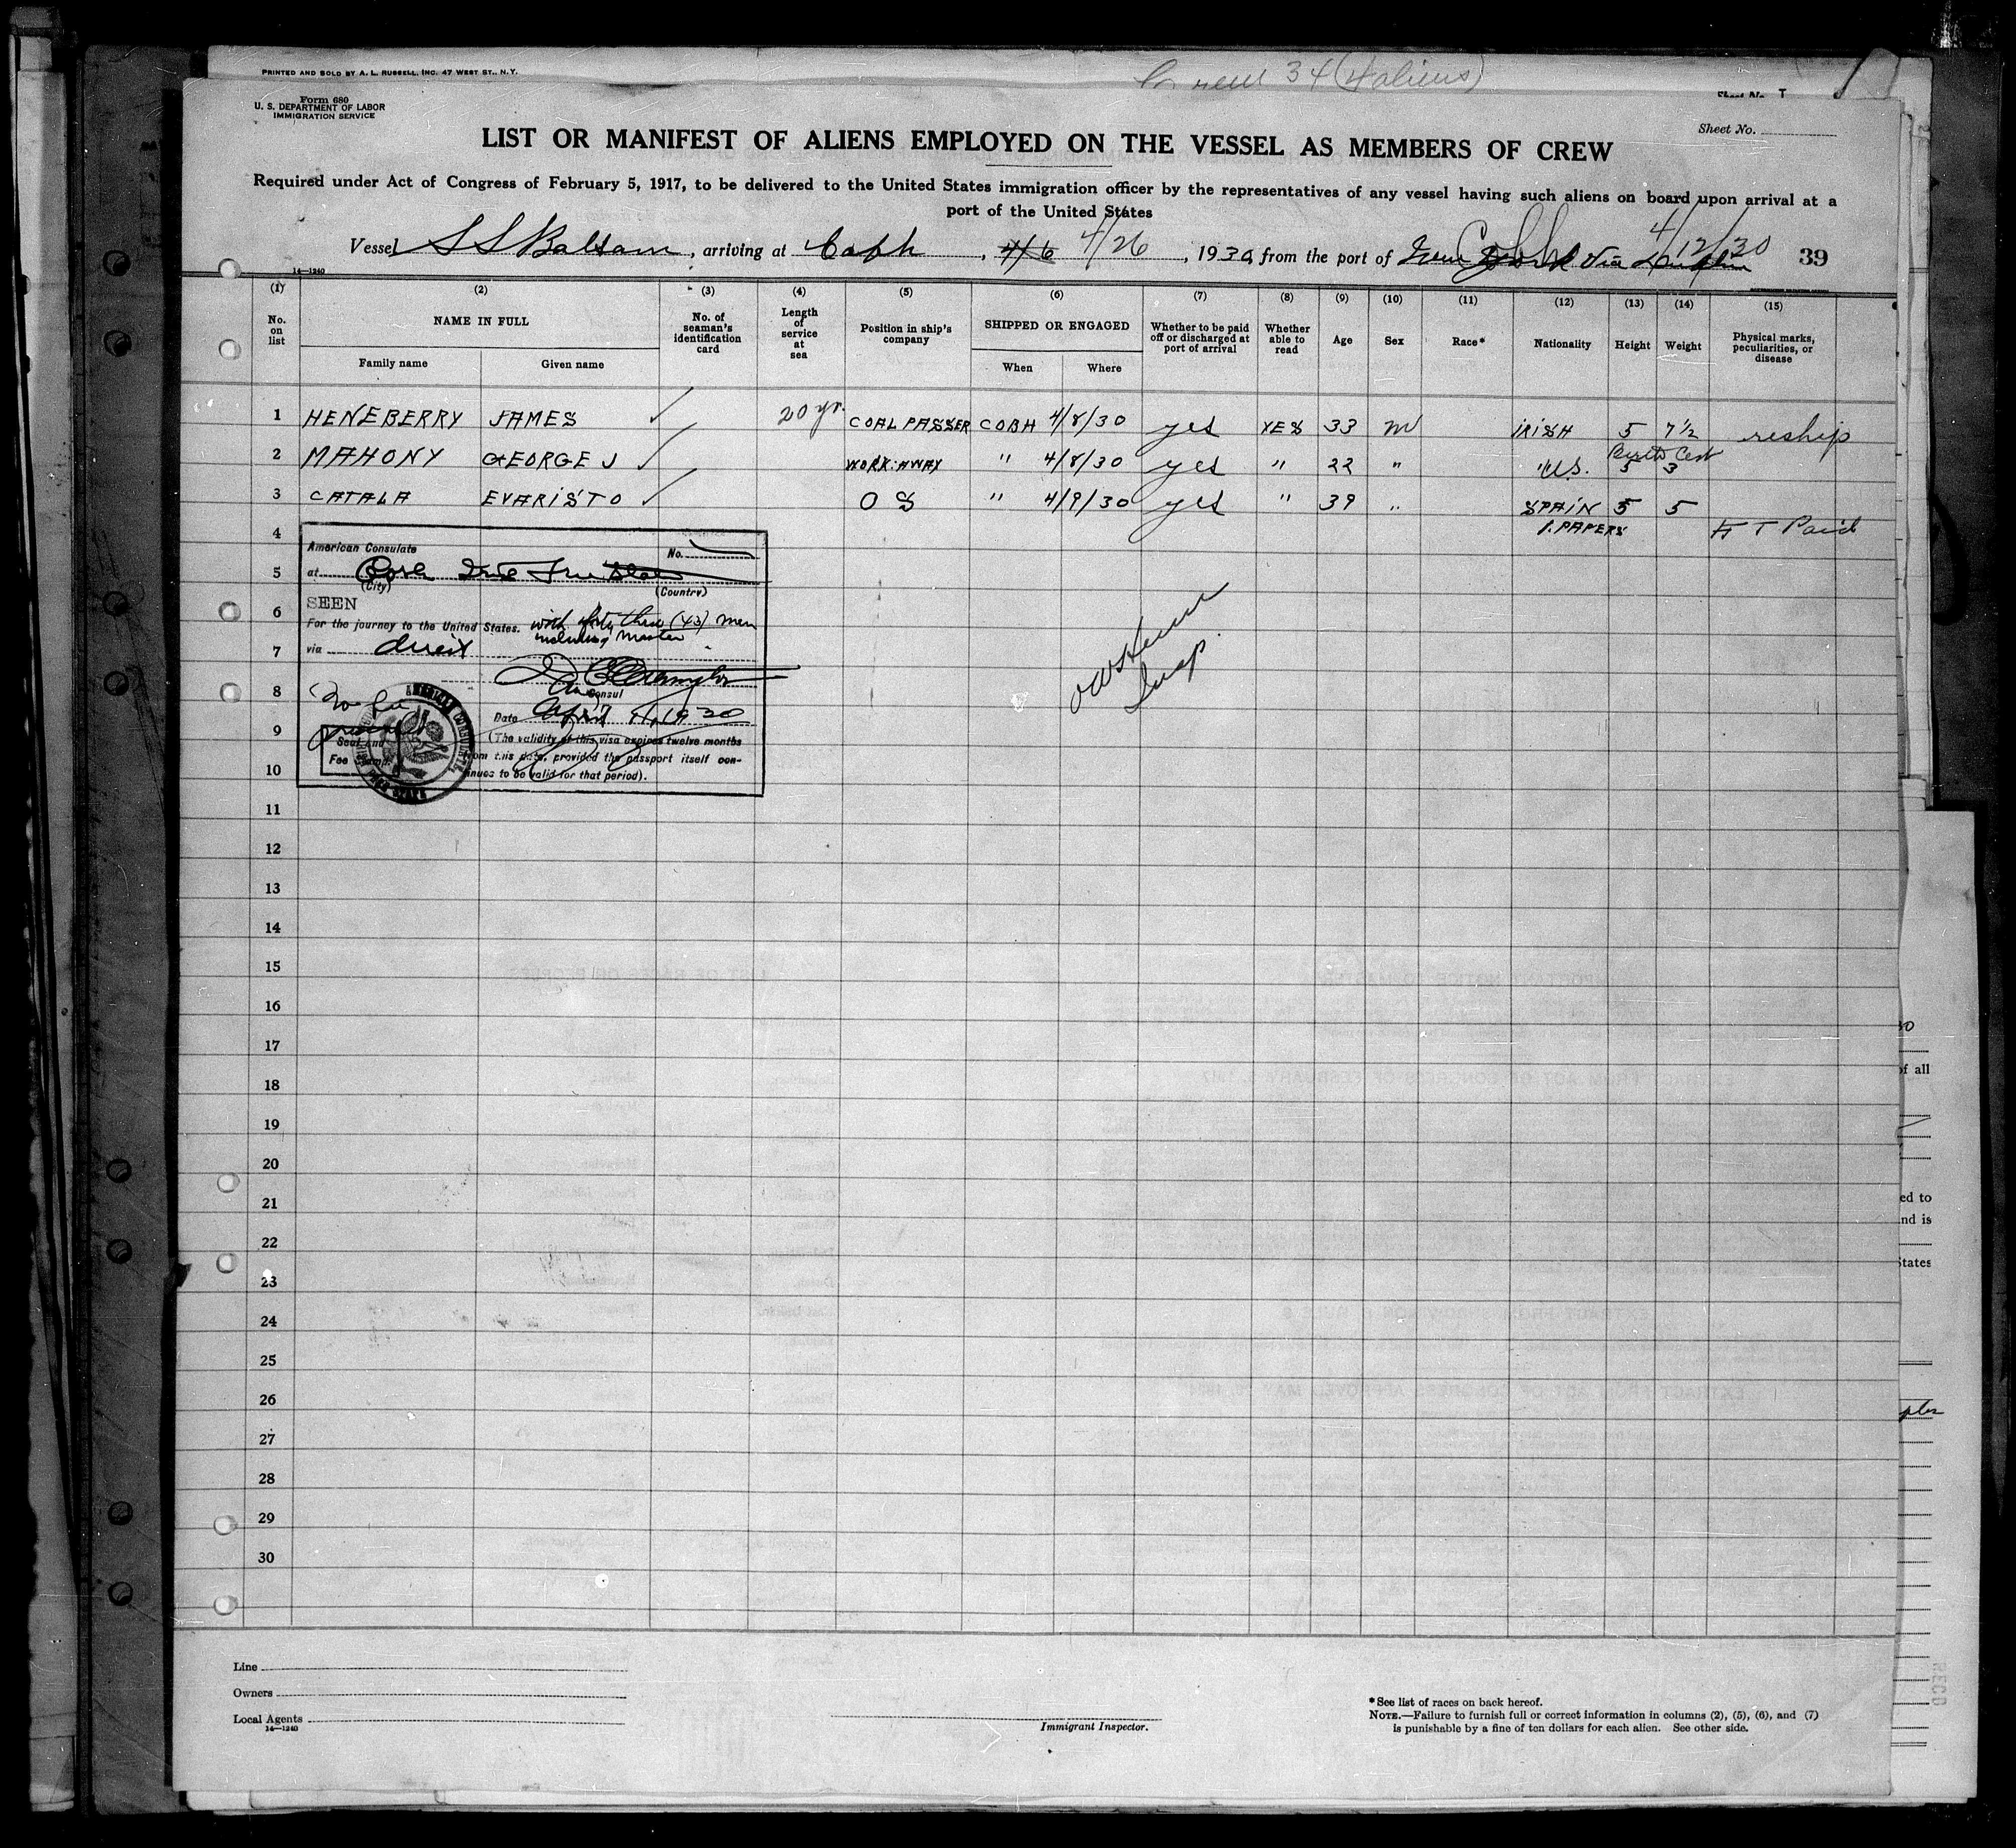 PRINTED AND SOLD BY A. L. RUSSELL, INC. 47 WEST ST., N.Y.
34 (4 aliens)
Form 680
U. S. DEPARTMENT OF LABOR
IMMIGRATION SERVICE
Sheet No.
LIST OR MANIFEST OF ALIENS EMPLOYED ON THE VESSEL AS MEMBERS OF CREW
Required under Act of Congress of February 5, 1917, to be delivered to the United States immigration officer by the representatives of any vessel having such aliens on board upon arrival at a
port of the United States
Vessel S S Balsam, arriving at Cobh, 4/6 4/26, 1930, from the port of Cobh via 4/12/30 39
14—1240
(1) (2) (3) (4) (5) (6) (7) (8) (9) (10) (11) (12) (13) (14) (15)
No. on list
NAME IN FULL
Family name
Given name
No. of seaman's identification card
Length of service at sea
Position in ship's company
SHIPPED OR ENGAGED
When
Where
Whether to be paid off or discharged at port of arrival
Whether able to read
Age
Sex
Race*
Nationality
Height
Weight
Physical marks, peculiarities, or disease
1 HENEBERRY JAMES 20 yr. COAL PASSER COBH 4/8/30 yes YES 33 m IRISH 5 7½ reship
2 MAHONY GEORGE J WORK-AWAY " 4/8/30 yes " 22 " U.S. 5 3
Birth Cert
3 CATALA EVARISTO O S " 4/9/30 yes " 39 " SPAIN 5 5
1. PAPERS
H T Paid
4
5
6
7
8
9
10
11
12
13
14
15
16
17
18
19
20
21
22
23
24
25
26
27
28
29
30
American Consulate
No.
at Cobh Irish Free State
(City) (Country)
SEEN
For the journey to the United States. with forty three (43) men
including Master
via direct
Consul
No fee
Date April 11, 1930
Seal and
Fee Stamp.
(The validity of this visa expires twelve months
from this date, provided the passport itself con-
tinues to be valid for that period).
AMERICAN CONSULATE
Insp.
Line
Owners
Local Agents
14—1240
Immigrant Inspector.
*See list of races on back hereof.
NOTE.—Failure to furnish full or correct information in columns (2), (5), (6), and (7)
is punishable by a fine of ten dollars for each alien. See other side.
of all
ed to
nd is
States